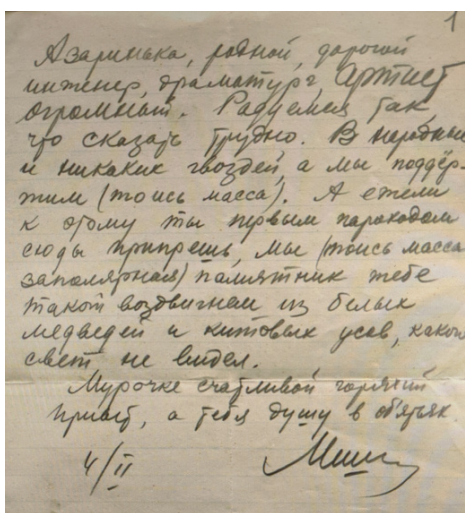 1
Азаринька, родной, дорогой
инженер, драматург, артист
огромный. Радуемся так,
что сказать трудно. В народные
и никаких гвоздей, а мы поддер-
жим (тоись масса). А ежели
к этому ты первым пароходом
сюды припрешь, мы (тоись масса
заполярная) памятник тебе
такой воздвигнем из белых
медведей и китовых усов, какого
свет не видел.
Мурочке счастливой горячий
привет, а тебя душу в объятьях.
4/II